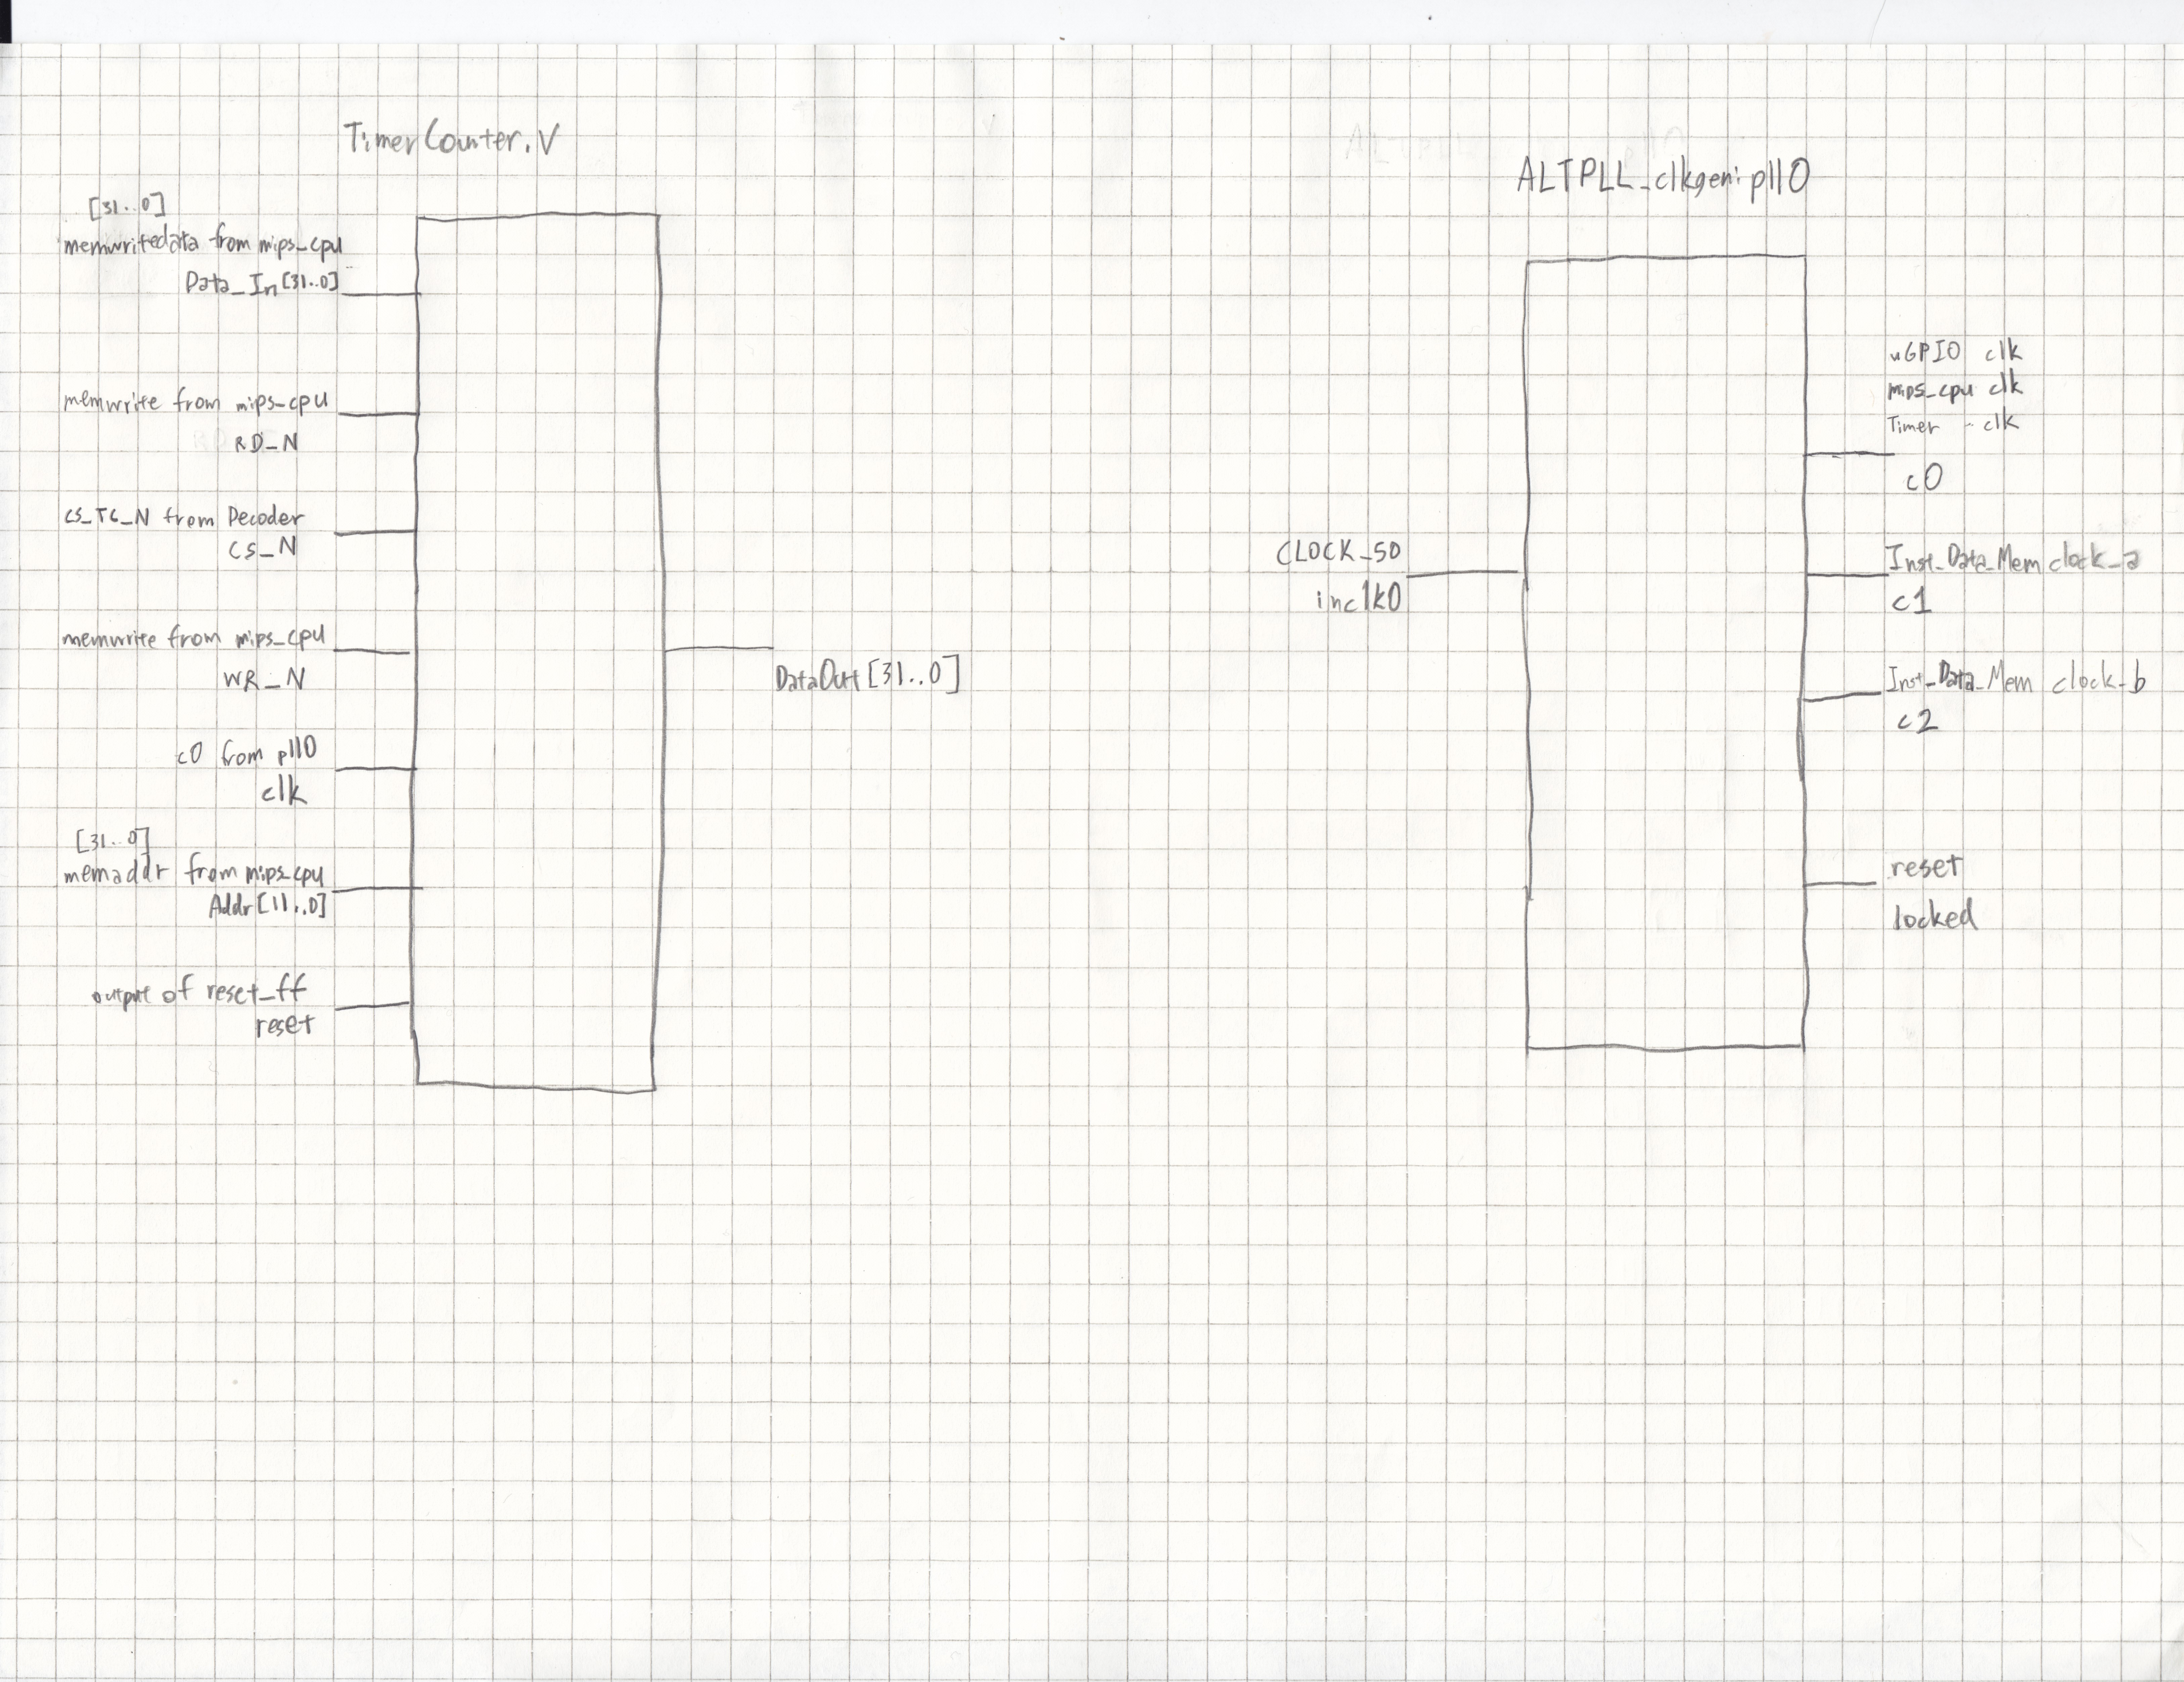 TimerCounter.V
[31..0]
memwritedata from mips_cpu
Data_In[31..0]
memwrite from mips_cpu
RD_N
CS_TC_N from Decoder
CS_N
memwrite from mips_cpu
WR_N
c0 from pll0
clk
[31..0]
memaddr from mips_cpu
Addr[11..0]
output of reset_ff
reset
DataOut[31..0]
ALTPLL_clkgen:pll0
CLOCK_50
inclk0
uGPIO clk
mips_cpu clk
Timer clk
c0
Inst_Data_Mem clock_a
c1
Inst_Data_Mem clock_b
c2
reset
locked